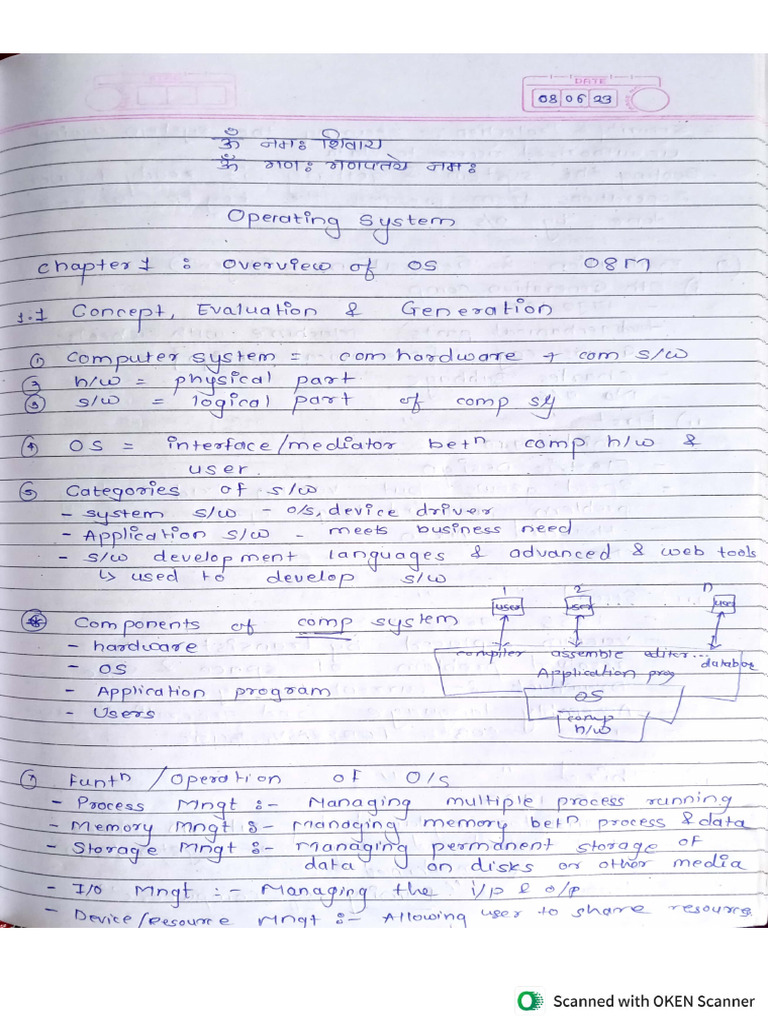 DATE
08 06 23
ॐ नमः शिवाय
ॐ गणः गणपतये नमः
Operating System
Chapter 1 : Overview of OS 08M
1.1 Concept, Evaluation & Generation
① Computer system = com hardware + com s/w
② h/w = physical part
③ s/w = logical part of comp sy
④ OS = interface/mediator betⁿ comp h/w &
user.
⑤ Categories of s/w
- system s/w - o/s, device driver
- Application s/w - meets business need
- s/w development languages & advanced & web tools
↳ used to develop s/w
1 2 n
user user user
Components of comp system
- hardware
- OS
- Application program
- Users
compiler assemble editer... databas
Application prog
OS
comp
h/w
⑦ Funtⁿ /Operation of O/s
- Process Mngt :- Managing multiple process running
- Memory Mngt :- Managing memory betⁿ process & data
- Storage Mngt :- Managing permanent storage of
data on disks or other media
- I/O Mngt :- Managing the i/p & o/p
- Device/Resource Mngt :- Allowing user to share resource
Scanned with OKEN Scanner